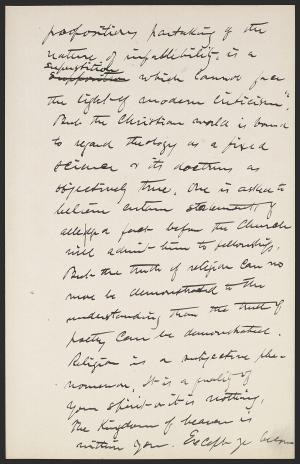 propositions partaking of the
nature of infallibility, is a
superstition
supposition which cannot face
the light of modern criticism".
But the Christian world is bound
to regard theology as a fixed
science & its doctrines as
objectively true. One is asked to
believe certain statements of
alleged fact before the Church
will admit him to fellowship.
But the truth of religion can no
more be demonstrated to the
understanding than the truth of
poetry can be demonstrated.
Religion is a subjective phe-
nomenon. It is a quality of
your spirit or it is nothing.
The Kingdom of heaven is
within you. Except ye become